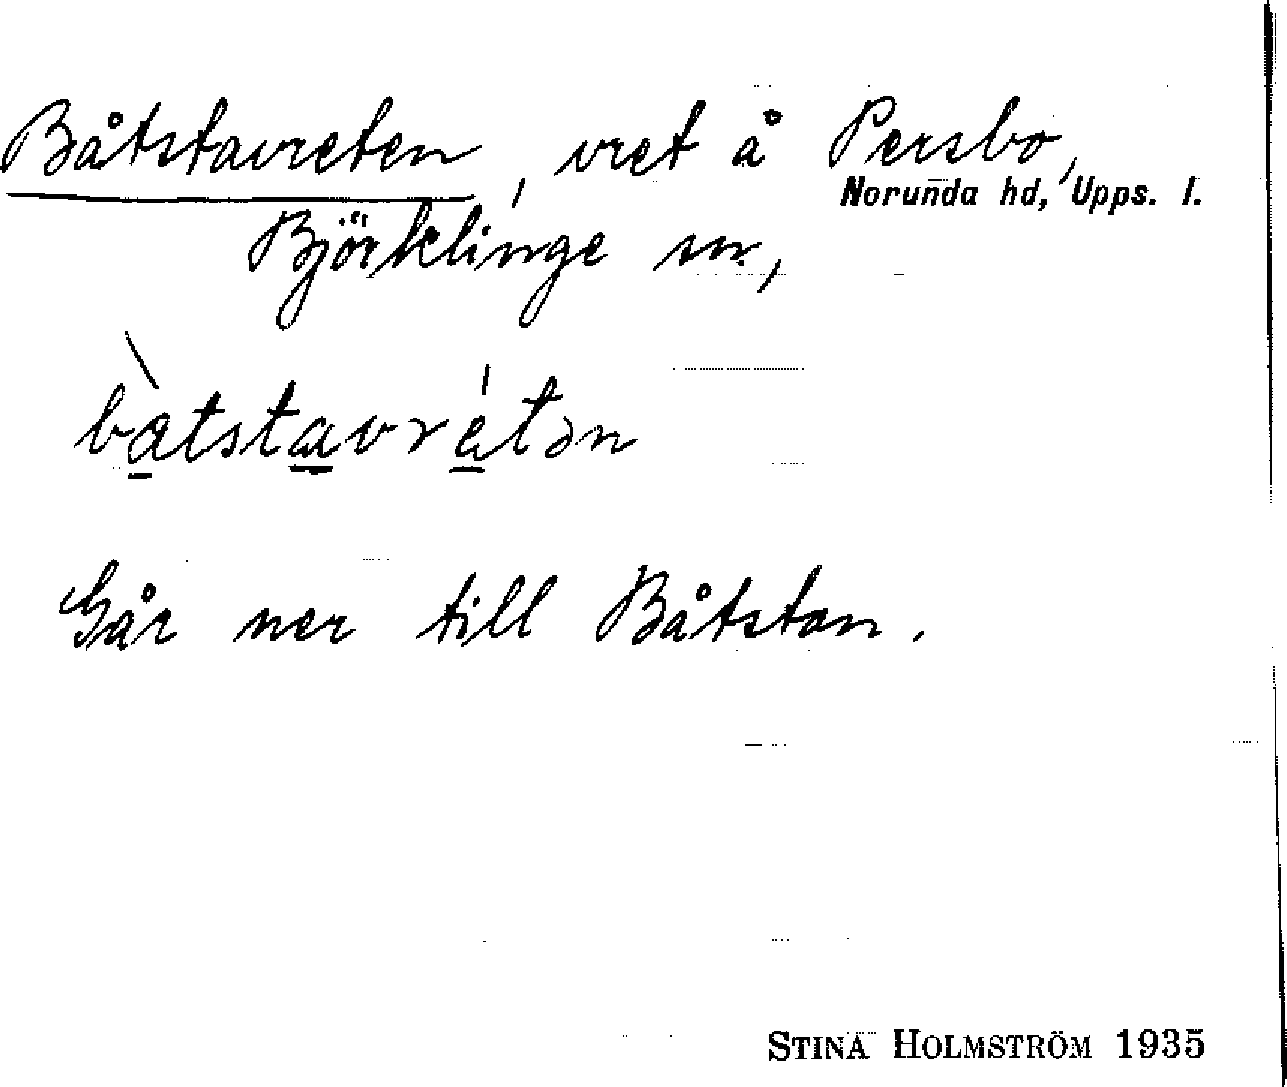 Båtstavreten, vret å Persbo,
Norunda hd, Upps. l.
Björklinge sn,
bàtstavrétən
Går ner till Båtstan.
STINA HOLMSTRÖM 1935